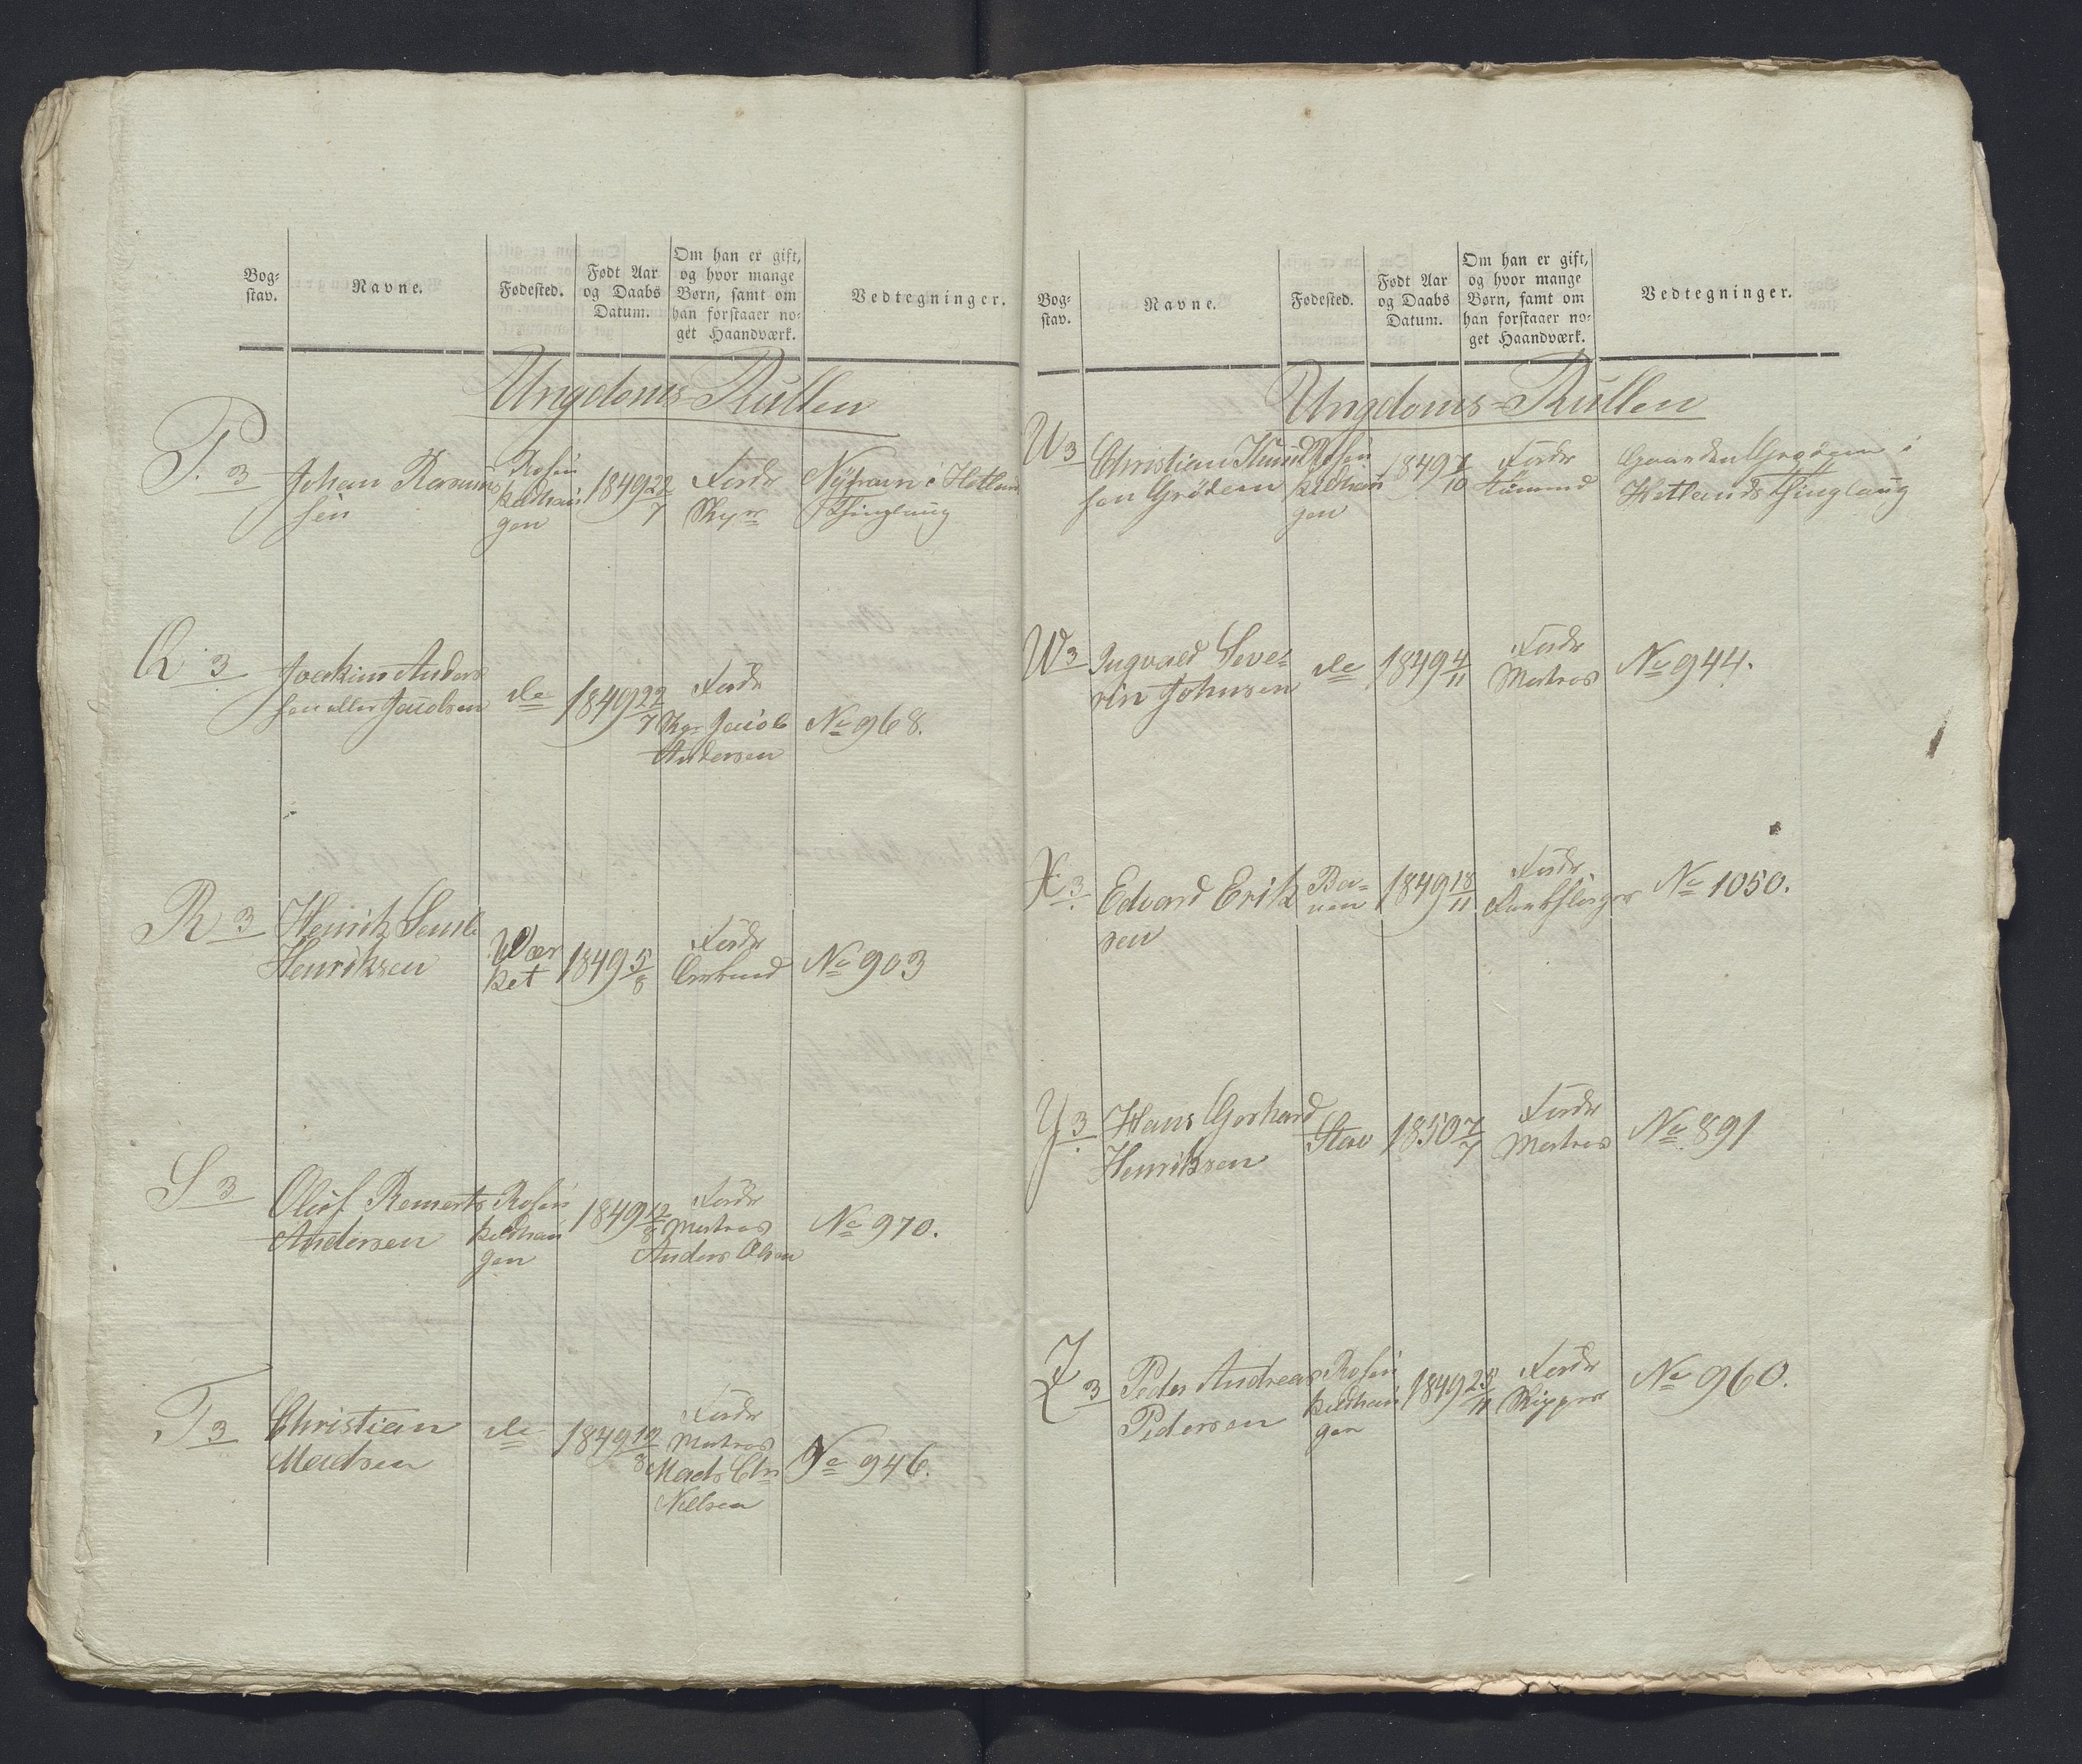 Bog-
stav.
Navne.
Fødested.
Født Aar
og Daabs
Datum.
Om han er gift,
og hvor mange
Børn, samt om
han forstaaer no-
get Haandværk.
Vedtegninger.
Ungdoms-Rullen
P. 3
Johan Rasmus
sen
Rosen
kildhau
gen
1849 22/7
Fordr
Skyr
Nÿtrain i Hetland
Thinglaug
Q 3
Joakim Anders
sen eller Jacobsen
do
1849 22/7
Fordr
Skpr Jacob
Andersen
No 968.
R 3
Henrik
Henriksen
Vær
ket
1849 5/8
Fordr
No 903
S 3
Oluf Remert
Andersen
Rosen
kildhau
gen
1849 12/8
Fordr
Matros
Anders Olsen
No 970.
T 3
Christian
Madsen
do
1849 19/8
Fordr
Matros
Mads Chr
Nielsen
No 946.
Bog-
stav.
Navne.
Fødested.
Født Aar
og Daabs
Datum.
Om han er gift,
og hvor mange
Børn, samt om
han forstaaer no-
get Haandværk.
Vedtegninger.
Ungdoms-Rullen
U 3
Christian Knud
sen Grödem
Rosen
kildhau
gen
1849 7/10
Fordr
Gaarden Grödem i
Hetlands Thinglaug
W 3
Ingvald Seve-
rin Johnsen
do
1849 4/11
Fordr
Matros
No 944.
X 3
Edvard Erik
sen
Ba-
nen
1849 18/11
Fordr
No 1050.
Y. 3
Hans Gerhard
Henriksen
Stav
1850 7/7
Fordr
Matros
No 891
Z 3
Peder Andreas
Pedersen
Rosen
kildhau
gen
1849 25/11
Fordr
Skipper
No 960.